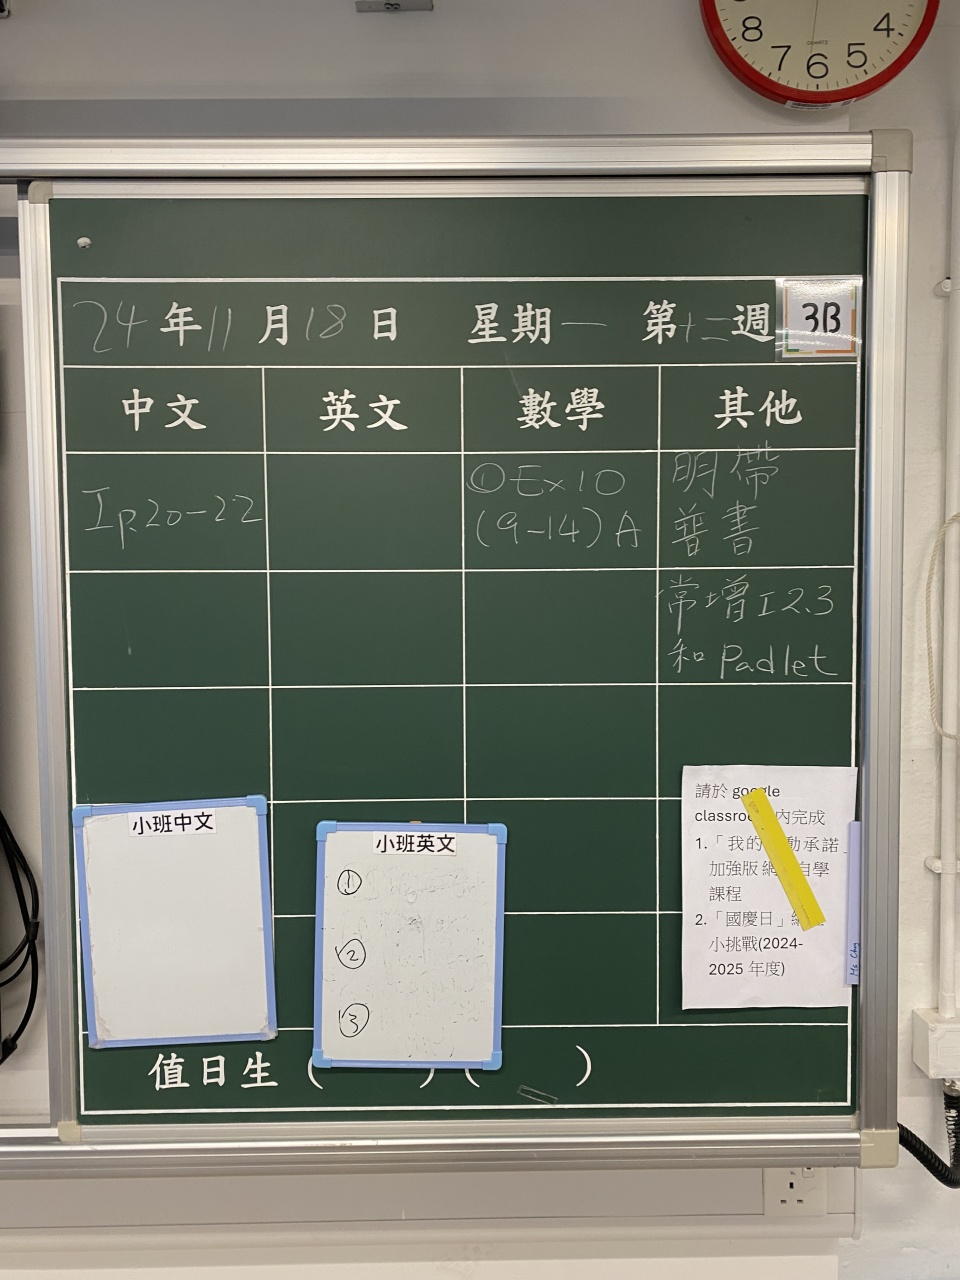 8 7 6 5 4
QUARTZ
24年11月18日 星期一 第十二週 3B
中文 英文 數學 其他
I p.20-22
①Ex10
(9-14) A
明帶
普書
常增I2.3
和 Padlet
小班中文
小班英文
①
②
③
請於 google
classroom 內完成
1.「我的 動承諾」
加強版 網 自學
課程
2.「國慶日」網
小挑戰(2024-
2025 年度)
值日生 ( ) ( )